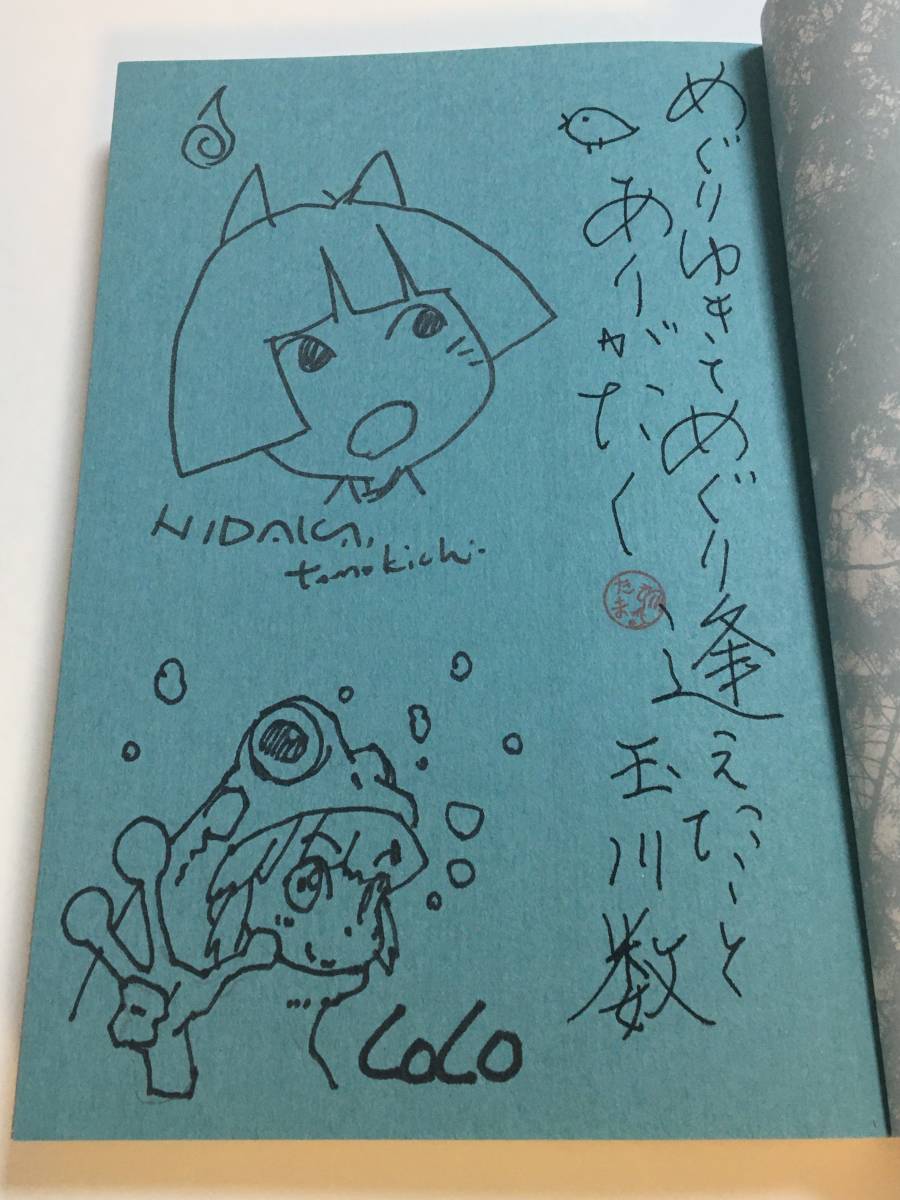 めぐりゆきてめぐり逢えたこと
ありがたく
玉川数
HIDAKA,
tomokichi.
COCO